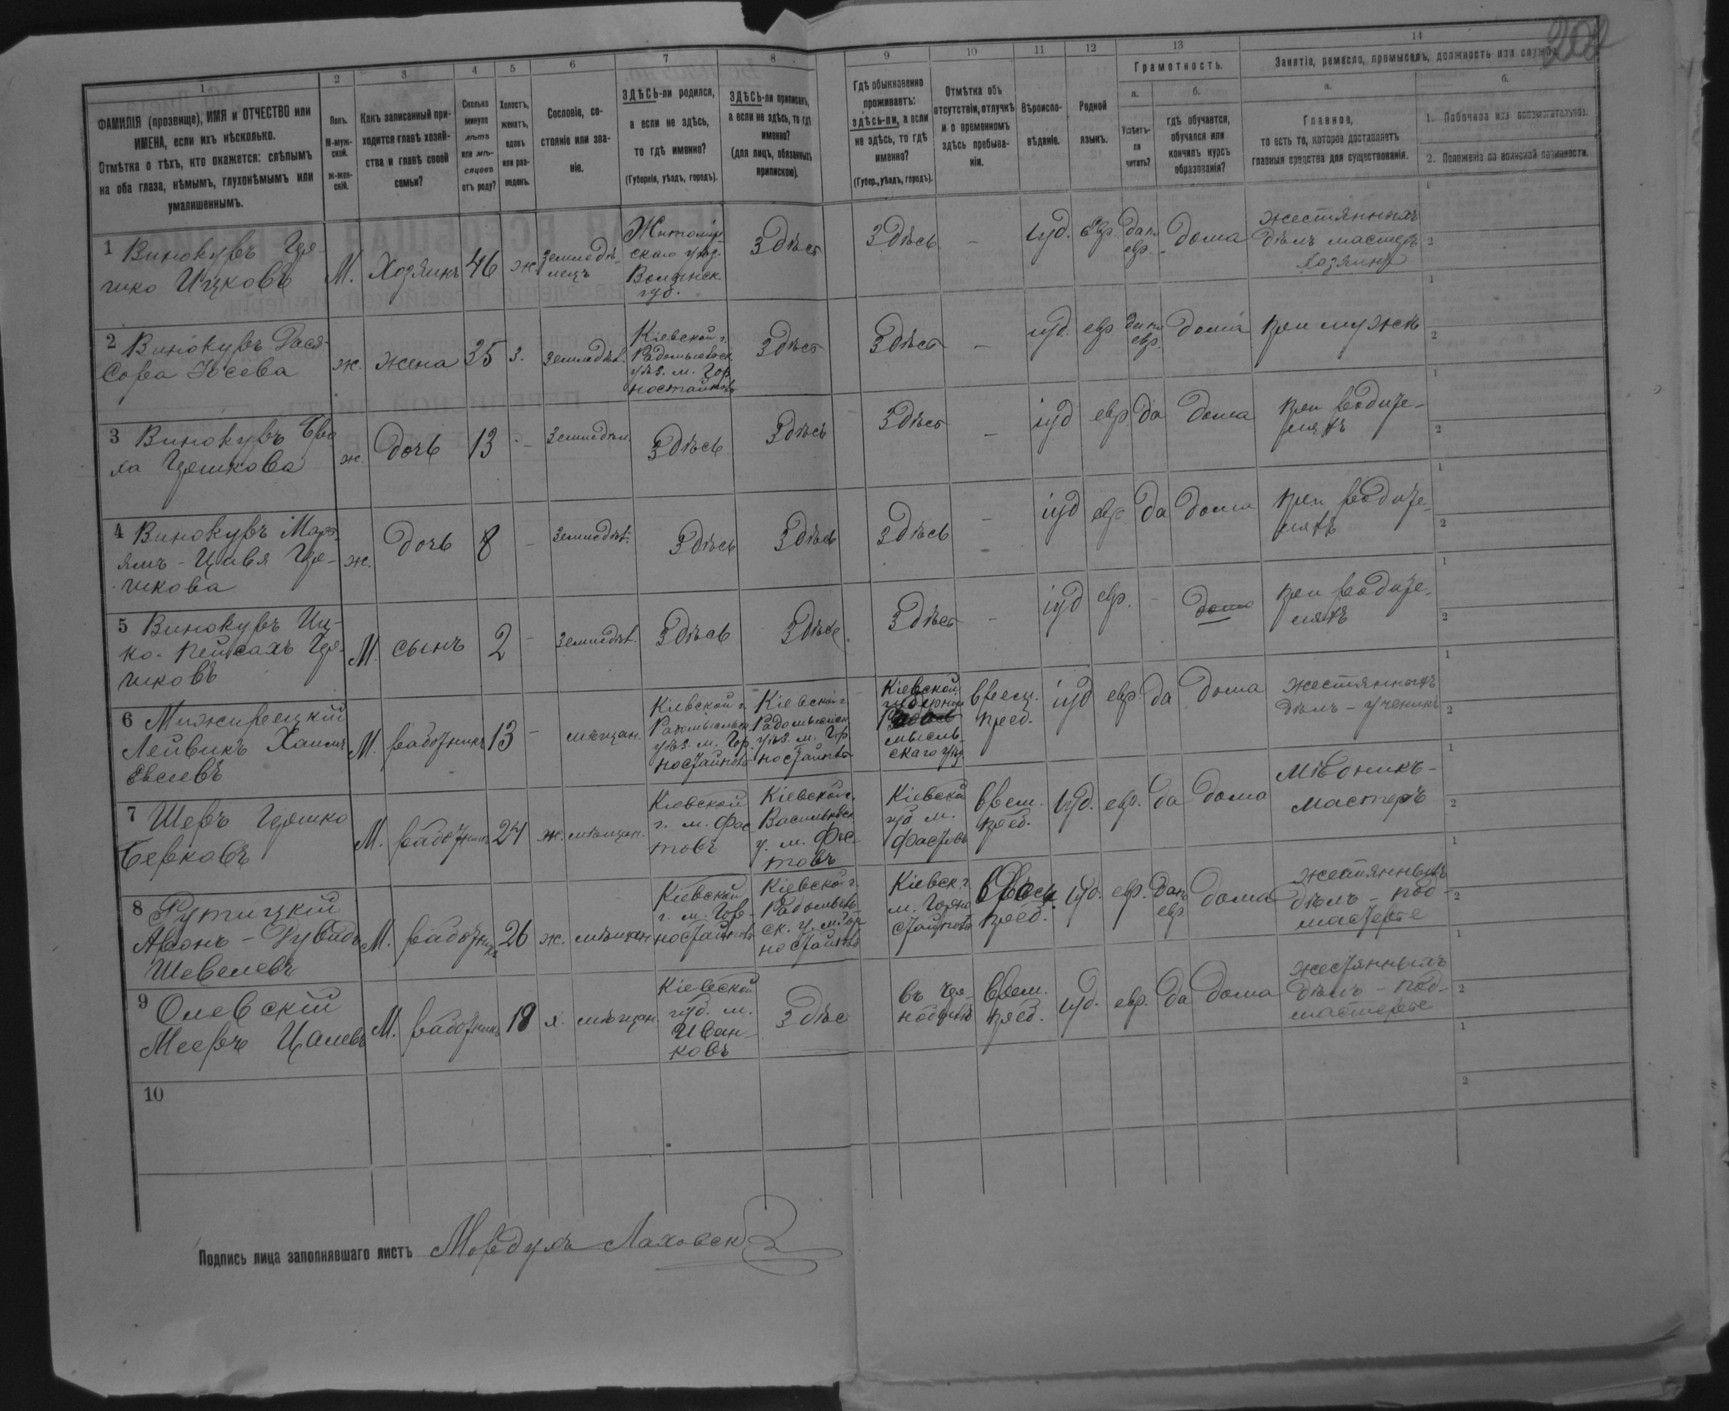 202
1
2
3
4
5
6
7
8
9
10
11
12
13
14
ФАМИЛІЯ (прозвище), ИМЯ и ОТЧЕСТВО или
ИМЕНА, если ихъ нѣсколько.
Отмѣтка о тѣхъ, кто окажется: слѣпымъ
на оба глаза, нѣмымъ, глухонѣмымъ или
умалишеннымъ.
Полъ.
М-муж-
ской.
ж-жен-
скій.
Какъ записанный при-
ходится главѣ хозяй-
ства и главѣ своей
семьи?
Сколько
минуло
лѣтъ
или мѣ-
сяцевъ
отъ роду?
Холостъ,
женатъ,
вдовъ
или раз-
веденъ.
Сословіе, со-
стояніе или зва-
ніе.
ЗДѢСЬ-ли родился,
а если не здѣсь,
то гдѣ именно?
(Губернія, уѣздъ, городъ).
ЗДѢСЬ-ли приписанъ,
а если не здѣсь, то гдѣ
именно?
(для лицъ, обязанныхъ
припискою).
Гдѣ обыкновенно
проживаетъ:
здѣсь-ли, а если
не здѣсь, то гдѣ
именно?
(Губер., уѣздъ, городъ).
Отмѣтка объ
отсутствіи, отлучкѣ
и о временномъ
здѣсь пребыва-
ніи.
Вѣроиспо-
вѣданіе.
Родной
языкъ.
Грамотность.
а.
Умѣетъ-
ли
читать?
б.
гдѣ обучается,
обучался или
кончилъ курсъ
образованія?
Занятіе, ремесло, промыселъ, должность или служба.
а.
Главное,
то есть то, которое доставляетъ
главныя средства для существованія.
б.
1. Побочное или вспомогательное.
2. Положеніе по воинской повинности.
1 Винокуръ Гер-
шко Ицковъ
М.
Хозяинъ
46
ж.
земледѣ-
лецъ
Житомір-
скаго уѣз.
Волынск.
губ.
Здѣсь
Здѣсь
-
іуд.
евр.
да
евр.
дома
жестянныхъ
дѣлъ мастеръ
хозяинъ
2 Винокуръ Бася-
Сора Іосева
ж.
жена
35
з.
земледѣл.
Кіевской г.
Радомысльск.
уѣз. м. Гор
ностайполь
Здѣсь
Здѣсь
-
іуд.
евр
евр.
дома
при мужѣ
3 Винокуръ
ла Гершкова
ж.
дочь
13
-
земледѣл.
Здѣсь
Здѣсь
Здѣсь
-
іуд
евр
да
дома
при родите-
ляхъ
4 Винокуръ Мар-
ямъ-Цивя Гер-
шкова
ж.
дочь
8
-
земледѣл.
Здѣсь
Здѣсь
Здѣсь
-
іуд
евр
да
дома
при родите-
ляхъ
5 Винокуръ Иц-
ко-Пейсахъ Гер-
шковъ
М.
сынъ
2
-
земледѣл.
Здѣсь
Здѣсь
Здѣсь
-
іуд
евр.
-
дома
при родите-
ляхъ
6 Мижирецкій
Лейвикъ Хаимъ
Овсіевъ
М.
работникъ
13
-
мѣщан.
Кіевской г.
Радомысльск
уѣз. м. Гор-
ностайполь
Кіевской г.
Радомысльск
уѣз. м. Гор
ностайполь
Кіевской
губерніи
Радо
мысль-
скаго уѣз.
времен.
преб.
іуд
евр
да
дома
жестянныхъ
дѣлъ - ученикъ
7 Шеръ Гершко
Берковъ
М.
работникъ
24
ж.
мѣщан.
Кіевской
г. м. Фас
товъ
Кіевской г.
Васильковск
у. м. Фас
товъ
Кіевской
губ м.
Фастовъ
врем.
преб.
іуд.
евр.
да
дома
Мѣдникъ-
мастеръ
8 Рутицкій
Аронъ-Рувинъ
Шевелевъ
М.
работни
къ
26
ж.
мѣщан
Кіевской
г. м. Гор-
ностайполь
Кіевской г.
Радомысль-
ск. у. м. Гор
ностайполь
Кіевск. г
м. Горно
стайполь
преб.
іуд.
евр.
да
евр
дома
жестянныхъ
дѣлъ - под-
мастерье
9 Олевскій
Мееръ Цалевъ
М.
работникъ
18
х.
мѣщан
Кіевской
губ. м.
Иван-
ковъ
Здѣсь
въ Чер-
нобылѣ
врем.
преб.
іуд.
евр.
да
дома
жестянныхъ
дѣлъ - под-
мастерье
10
Подпись лица заполнявшаго листъ Мордухъ Лаховскій